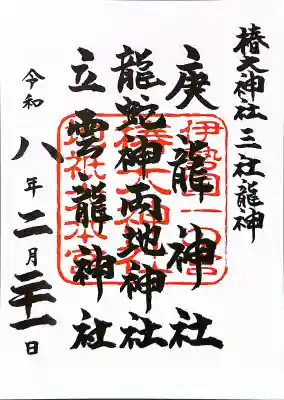 椿大神社三社龍神
庚龍神社
龍蛇神両地神社
立雲龍神社
令和八年二月二十一日
伊勢国一之宮
椿大神社
地祇大本宮